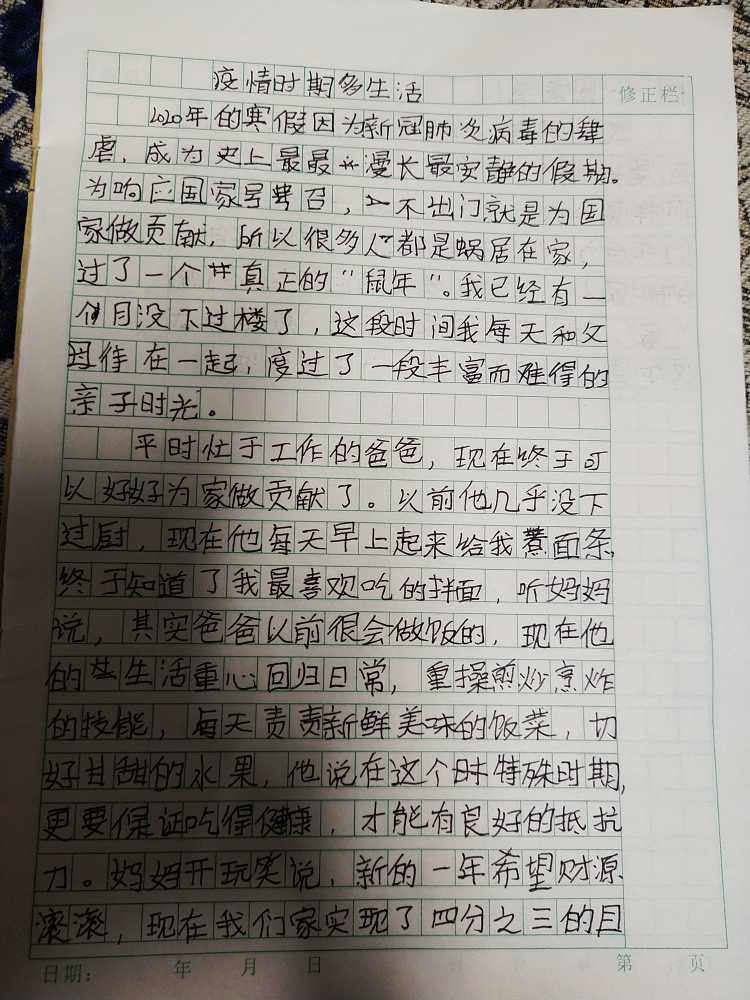 疫情时期多生活
修正栏
2020年的寒假因为新冠肺炎病毒的肆
虐，成为史上最最漫长最安静的假期。
为响应国家号召，不出门就是为国
家做贡献，所以很多人都是蜗居在家，
过了一个真正的“鼠年”。我已经有一
个月没下过楼了，这段时间我每天和父
母待在一起，度过了一段丰富而难得的
亲子时光。
平时忙于工作的爸爸，现在终于可
以好好为家做贡献了。以前他几乎没下
过厨，现在他每天早上起来给我煮面条，
终于知道了我最喜欢吃的拌面，听妈妈
说，其实爸爸以前很会做饭的，现在他
的生活重心回归日常，重操煎炒烹炸
的技能，每天责责新鲜美味的饭菜，切
好甘甜的水果，他说在这个特殊时期，
更要保证吃得健康，才能有良好的抵抗
力。妈妈开玩笑说，新的一年希望财源
滚滚，现在我们家实现了四分之三的目
日期： 年 月 日 第 页